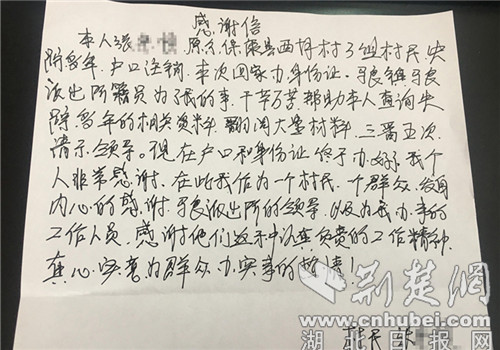 感谢信
本人张 原系保康县西坪村3组村民, 失
踪多年. 户口注销. 本次回家办身份证. 马良镇马良
派出所籍员为了我的事. 千辛万苦帮助本人查询失
踪多年的相关资料. 翻阅大量材料. 三番五次.
请示领导. 现在户口和身份证终于办好了我个
人非常感谢. 在此我作为一个村民. 一个群众. 发自
内心的感谢. 马良派出所的领导. 以及为我办事的
工作人员. 感谢他们这种认真负责的工作精神.
真心实意为群众办实事的
村民
荆楚网
www.cnhubei.com
湖北日报网